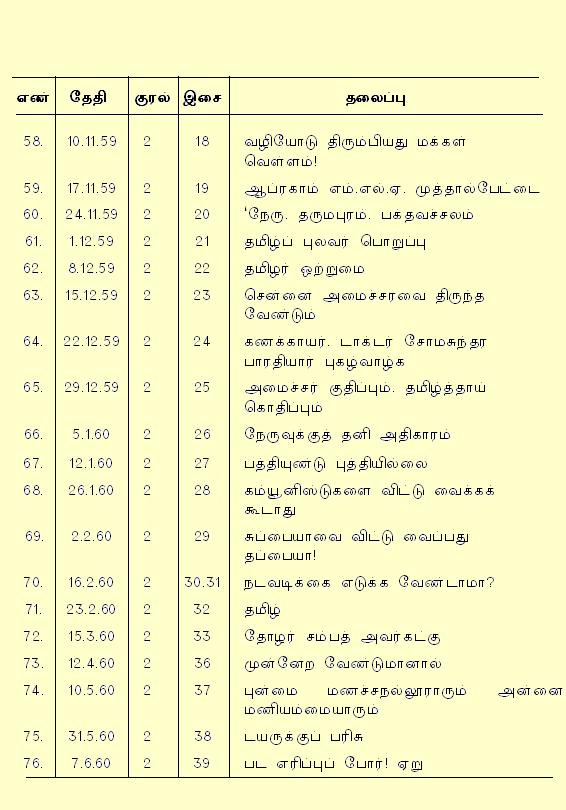 எண் தேதி குரல் இசை தலைப்பு
58. 10.11.59 2 18 வழியோடு திரும்பியது மக்கள்
வெள்ளம்!
59. 17.11.59 2 19 ஆப்ரகாம் எம்.எல்.ஏ. முத்தால்பேட்டை
60. 24.11.59 2 20 'நேரு. தருமபுரம். பக்தவச்சலம்
61. 1.12.59 2 21 தமிழ்ப் புலவர் பொறுப்பு
62. 8.12.59 2 22 தமிழர் ஒற்றுமை
63. 15.12.59 2 23 சென்னை அமைச்சரவை திருந்த
வேண்டும்
64. 22.12.59 2 24 கணக்காயர். டாக்டர் சோமசுந்தர
பாரதியார் புகழ்வாழ்க
65. 29.12.59 2 25 அமைச்சர் குதிப்பும். தமிழ்த்தாய்
கொதிப்பும்
66. 5.1.60 2 26 நேருவுக்குத் தனி அதிகாரம்
67. 12.1.60 2 27 பத்தியுண்டு புத்தியில்லை
68. 26.1.60 2 28 கம்யூனிஸ்டுகளை விட்டு வைக்கக்
கூடாது
69. 2.2.60 2 29 சுப்பையாவை விட்டு வைப்பது
தப்பையா!
70. 16.2.60 2 30.31 நடவடிக்கை எடுக்க வேண்டாமா?
71. 23.2.60 2 32 தமிழ்
72. 15.3.60 2 33 தோழர் சம்பத் அவர்கட்கு
73. 12.4.60 2 36 முன்னேற வேண்டுமானால்
74. 10.5.60 2 37 புன்மை மணச்சநல்லூராரும் அன்னை
மணியம்மையாரும்
75. 31.5.60 2 38 டயருக்குப் பரிசு
76. 7.6.60 2 39 பட எரிப்புப் போர்! ஏறு